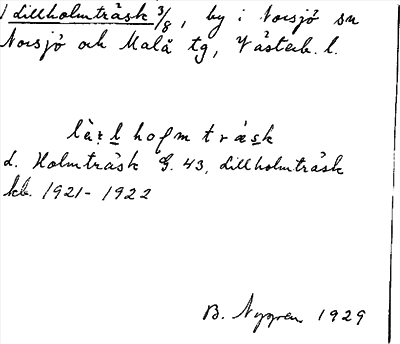 Lillholmträsk 3/8, by i Norsjö sn
Norsjö och Malå tg, Västerb. l.
d. Holmträsk G. 43, Lillholmträsk
kb. 1921-1922
B. Nygren 1929